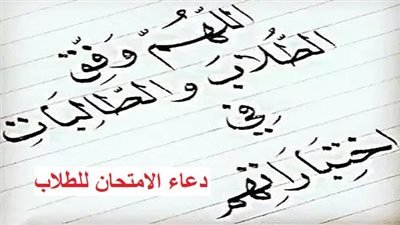 اللَّهُمَّ وَفِّقْ
الطُّلَابَ وَالطَّالِبَاتِ
فِي
اخْتِبَارَاتِهِمْ
دعاء الامتحان للطلاب